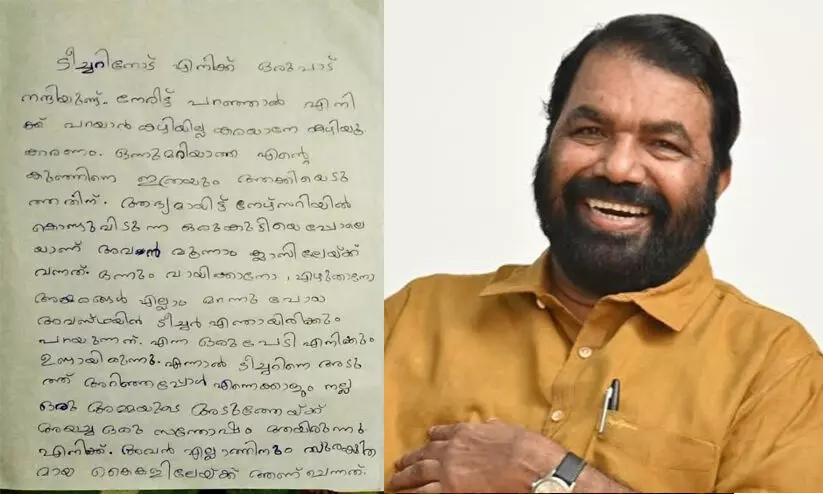 ടീച്ചറിനോട് എനിക്ക് ഒരുപാട്
നന്ദിയുണ്ട്. നേരിട്ട് പറഞ്ഞാൽ എനി
ക്ക് പറയാൻ കഴിയില്ല കരയാനേ കഴിയു
കാരണം. ഒന്നുമറിയാത്ത എന്റെ
കുഞ്ഞിനെ ഇത്രയും ആക്കിയെടു
ത്തതിന്. ആദ്യമായിട്ട് നേഴ്സറിയിൽ
കൊണ്ടുവിടുന്ന ഒരുകുട്ടിയെപോലെ
യാണ് അവൻ മൂന്നാം ക്ലാസിലേയ്ക്ക്
വന്നത്. ഒന്നും വായിക്കാനോ, എഴുതാനോ
അക്ഷരങ്ങൾ എല്ലാം മറന്നു പോയ
അവസ്ഥയിൽ ടീച്ചർ എന്തായിരിക്കും
പറയുന്നത്. എന്ന ഒരുപേടി എനിക്കും
ഉണ്ടായിരുന്നു. എന്നാൽ ടീച്ചറിനെ അടു
ത്ത് അറിഞ്ഞപ്പോൾ എന്നെക്കാളും നല്ല
ഒരു അമ്മയുടെ അടുത്തേയ്ക്ക്
അയച്ച ഒരു സന്തോഷം ആയിരുന്നു
എനിക്ക്. അവൻ എല്ലാത്തിനും സുരക്ഷിത
മായ കൈകളിലേയ്ക്ക് ആണ് ചെന്നത്.